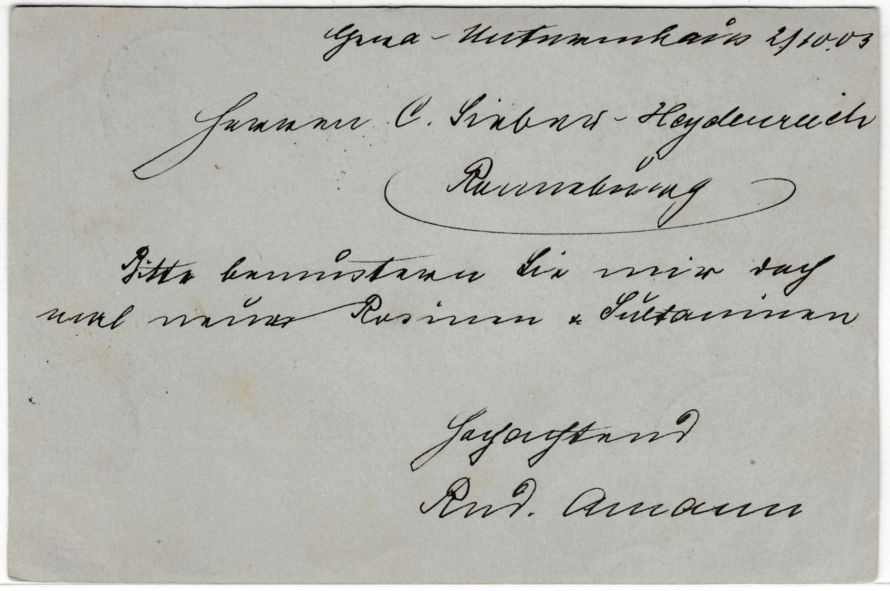 Gera-Untermhaus 2/10.03
Herren C. Sieber-Heydenreich
Ronneburg
Bitte bemustern Sie mir doch
mal neue Rosinen & Sultaninen
Hochachtend
Rud. Amann